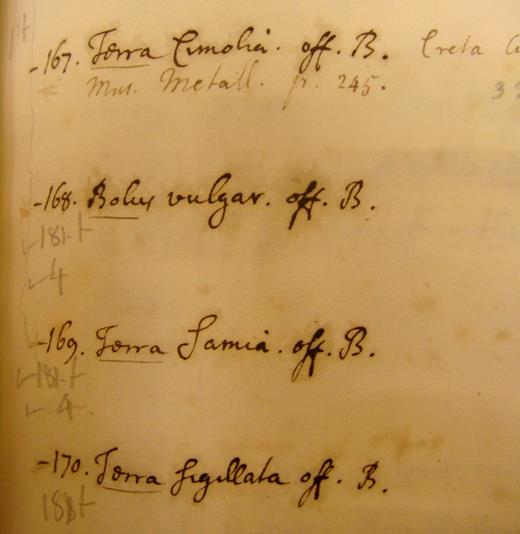 -167. Terra Cimolia. off. B. Creta
Mus. Metall. p. 245. 3
-168. Bolus vulgar. off. B.
181.t
-4
-169. Terra Samia. off. B.
181.t
-4.
-170. Terra sigillata off. B.
181t